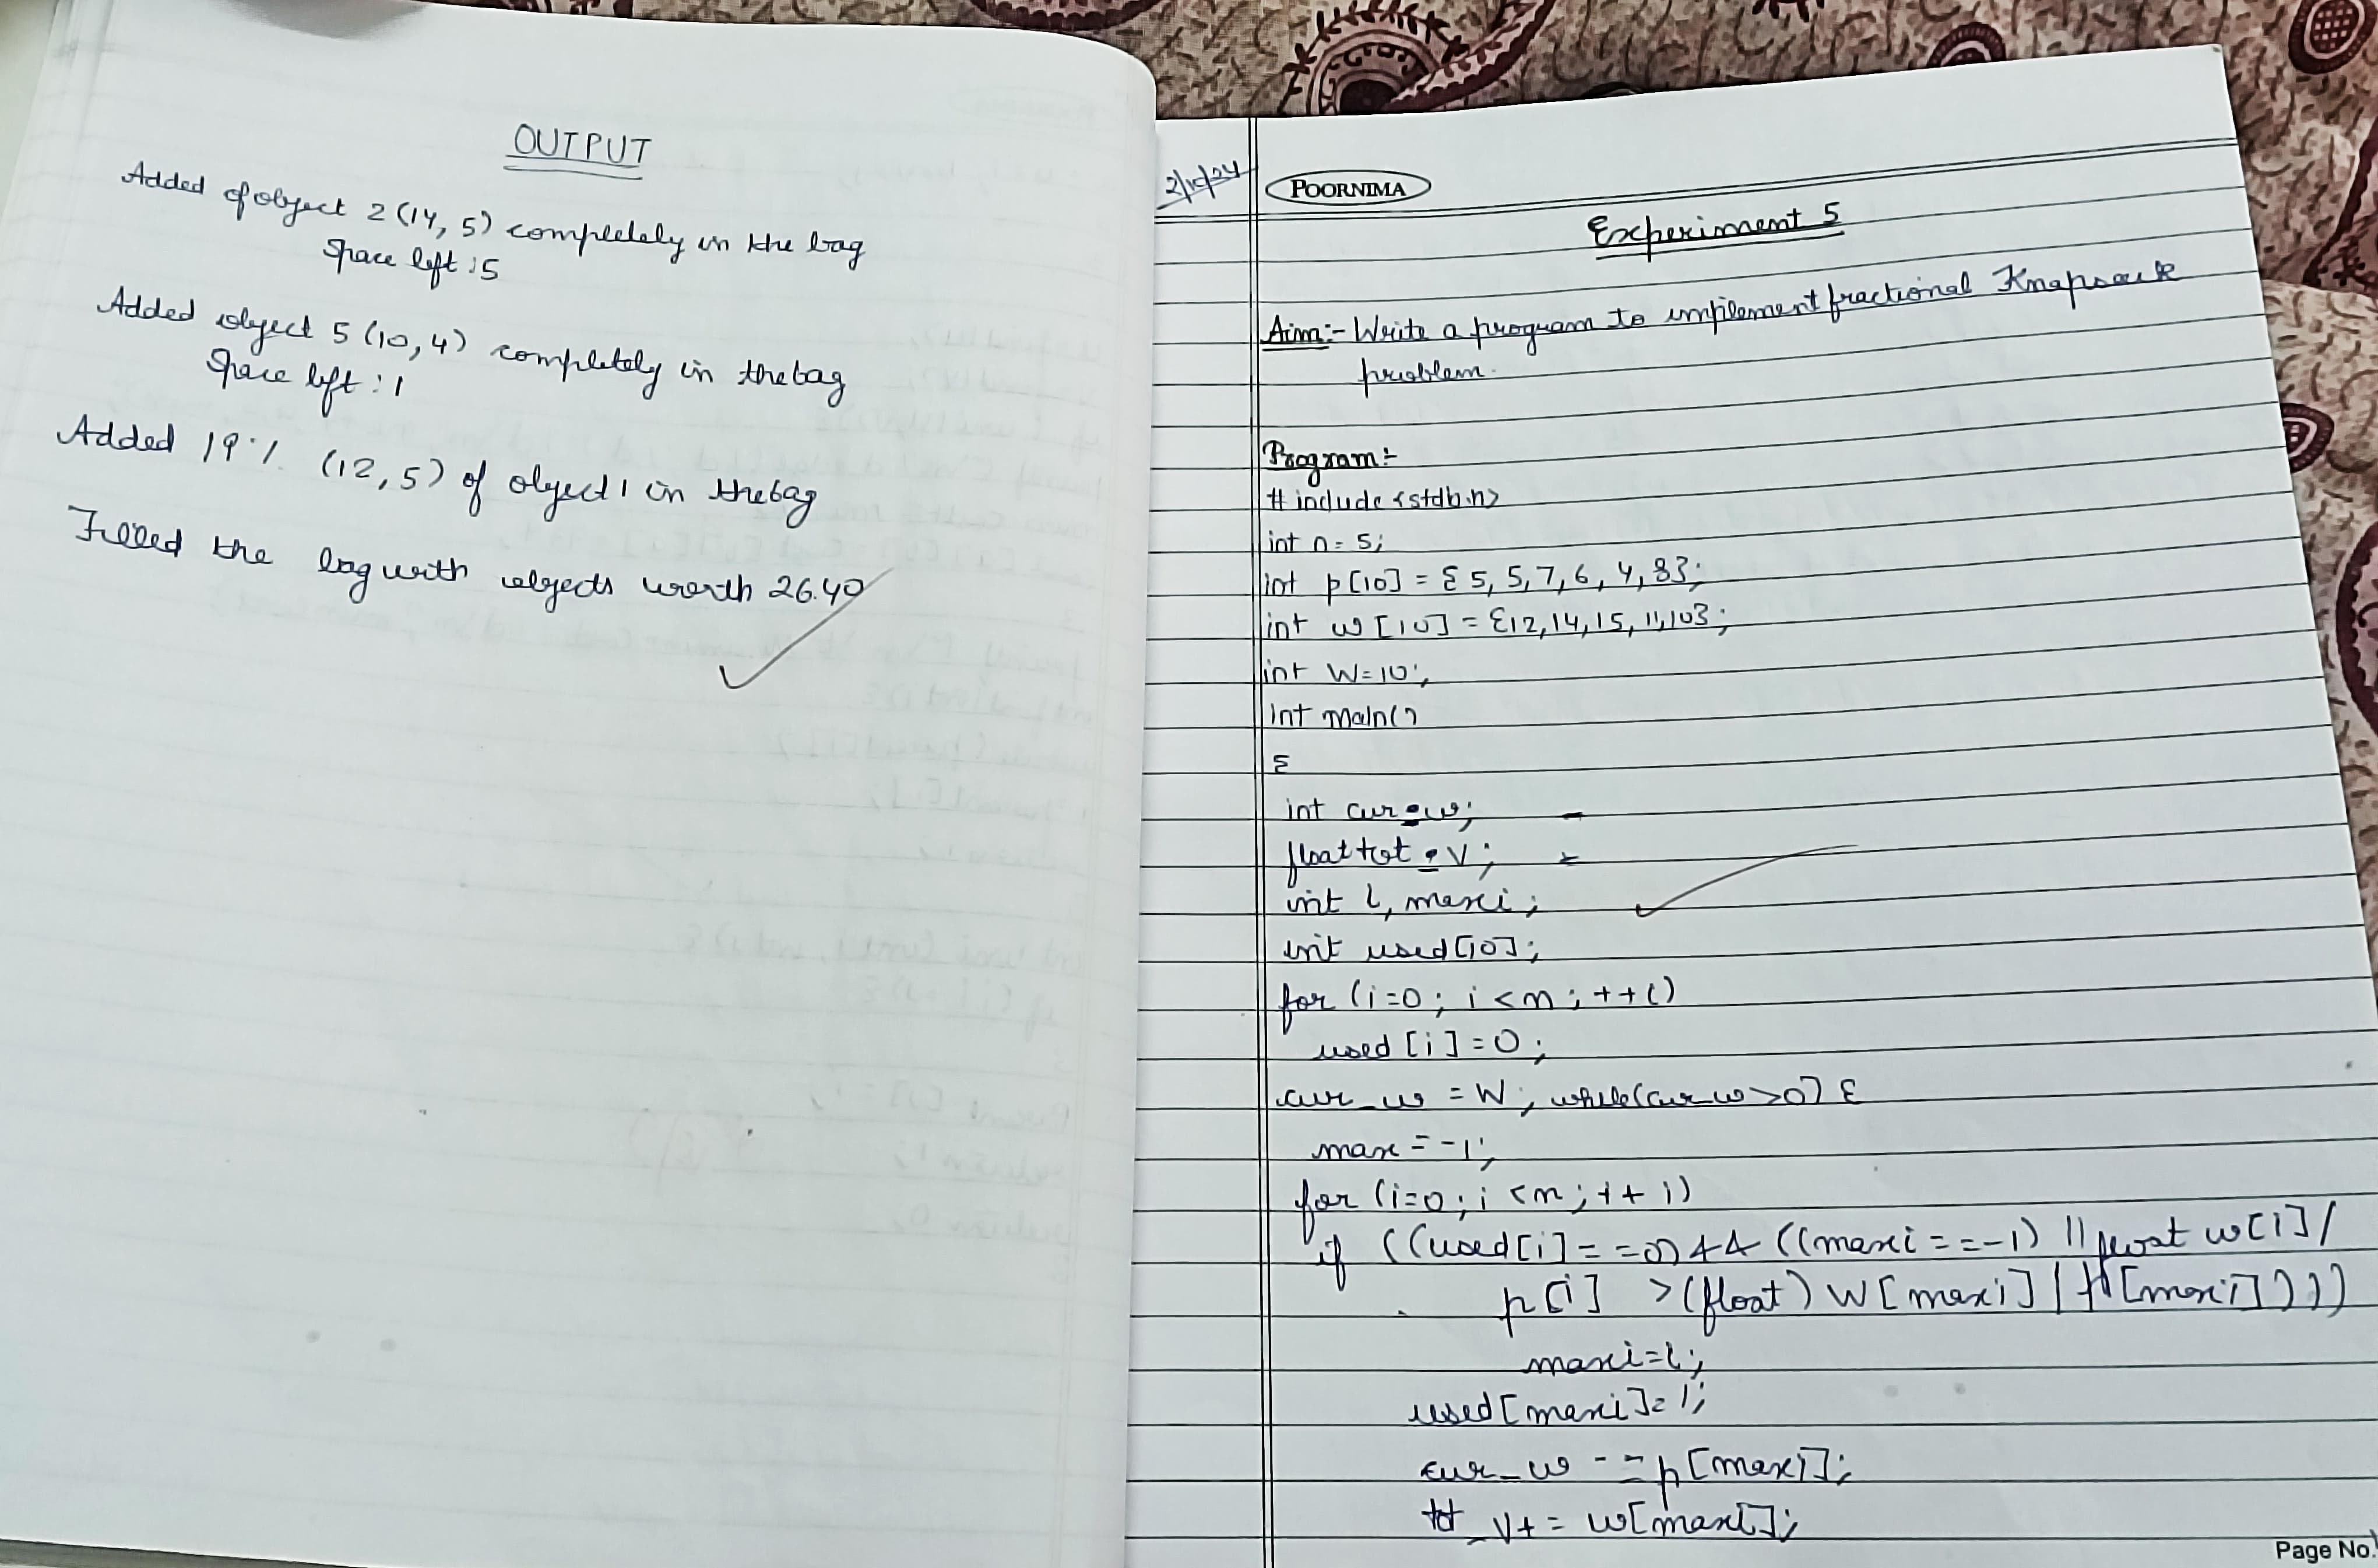 OUTPUT
Added of object 2 (14, 5) completely in the bag
Space left : 5
Added object 5 (10, 4) completely in the bag
Space left : 1
Added 19% (12, 5) of object 1 in the bag
Filled the bag with objects worth 26.40
2/10/24
POORNIMA
Experiment 5
Aim:- Write a program to implement fractional Knapsack
problem.
Program:-
# include <stdb.h>
int n = 5;
int p [10] = { 5, 5, 7, 6, 4, 8};
int w [10] = {12, 14, 15, 11, 10};
int W = 10;
int main()
{
int cur_w;
float tot_v;
int i, maxi;
int used [10];
for (i=0; i<n; ++i)
used [i] = 0;
cur_w = W; while(cur w >0) {
max = -1;
for (i=0; i<n; ++i)
if ((used[i] == 0) && ((maxi == -1) || float w[i]/
p[i] > (float) W[maxi] / p[maxi])))
maxi=i;
used[maxi]=1;
cur_w -= p[maxi];
tot_v+ = w[maxi];
Page No